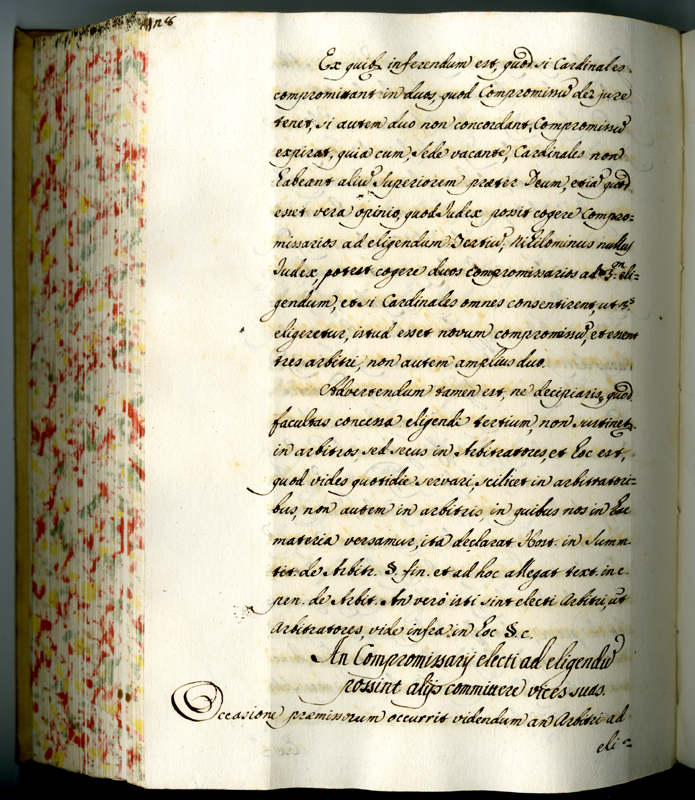 128
Ex quib. inferendum est, quod si Cardinales
compromittant in duos, quod Compromissũ de jure
tenet, si autem duo non concordant, Compromissũ
expirat, quia cum, Sede vacante, Cardinales non
habeant aliũ Superiorem præter Deum, etiã quod
esset vera opinio, quod Judex possit cogere Compro=
missarios ad eligendum Tertiũ, Nihilominus nullus
Judex, potest cogere duos compromissarios ad 3.m eli=
gendum, et si Cardinales omnes consentirent, ut 3.s
eligeretur, istud esset novum compromissũ, et essent
tres arbitri, non autem amplius duo.
Advertendum tamen est, ne decipiaris, quod
facultas concessa eligendi tertium, non sustinet.
in arbitros, sed secus in Arbitratores, et hoc est,
quod vides quotidie servari, scilicet in arbitratori=
bus, non autem in arbitris, in quibus nos in hac
materia versamur, ita declarat Host. in Summ
tit. de Arbitr. § fin. et ad hoc allegat text. in c.
pen. de Arbit. An verò isti sint electi Arbitri, ut
Arbitratores, vide infra in hoc §. c.
An Compromissarij electi ad eligendũ
possint alijs committere vices suas.
Occasione præmissorum occurrit videndum an Arbitri ad
eli=